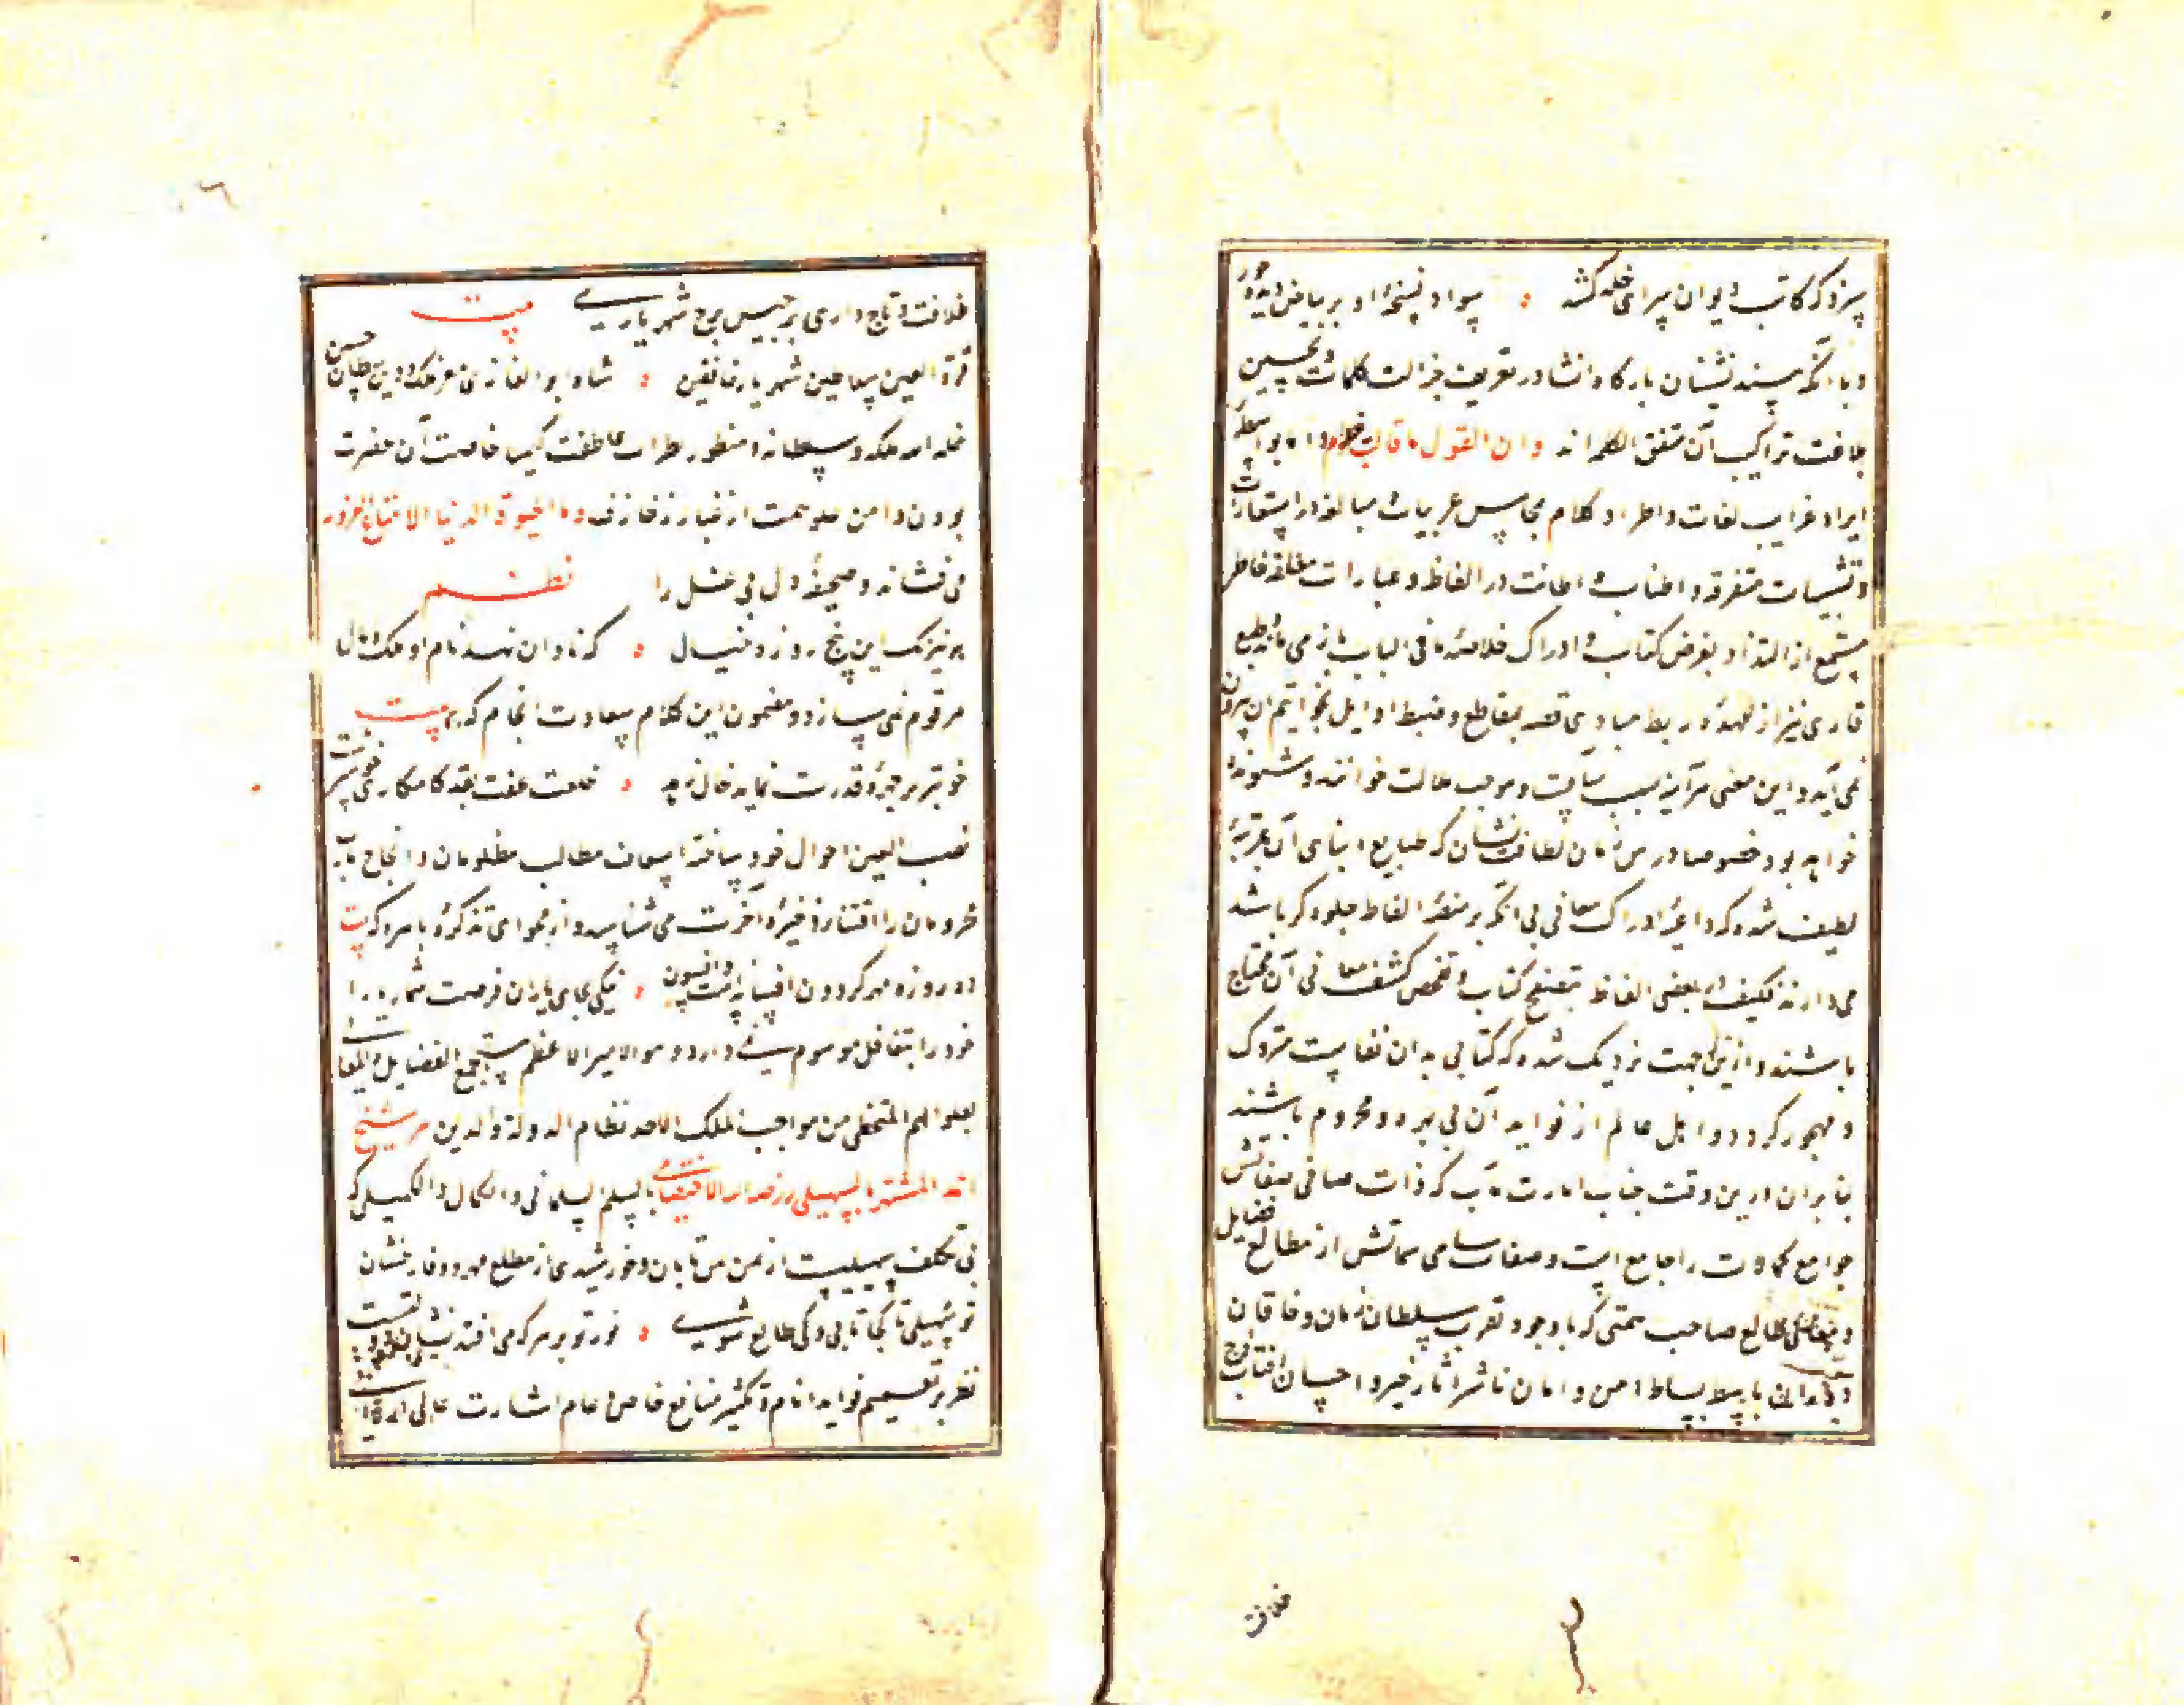 سزد که کاتب دیوان سرای خلد کشد سواد نسخهٔ او بر بیاض دیدهٔ حور
و با آنکه مسند نشینان بارگاه انشا در تعریف جزالت کلمات و تحسین
بلاغت تراکیب آن متفق الکلمه‌اند و ان القول ما قالت حذام اما بواسطه
ایراد غرایب لغات و اطراد کلام بمحاسن عربیات و مبالغه در استعارات
و تشبیهات متفرقه و اطناب و اطالت در الفاظ و عبارات مغلقه خاطر
مستمع از التذاذ بغرض کتاب و ادراک خلاصهٔ ما فی الباب باز می ماند و طبع
قاری نیز از عهدهٔ ربط مبادی قصه بمقاطع و ضبط اوایل بخواتیم آن بیرون
نمی آید و این معنی هرآینه سبب سآمت و موجب ملالت خواننده و شنونده
خواهد بود خصوصا درین زمان لطافت نشان که طبایع ابنای آن بمرتبهٔ
لطیف شده که داعیهٔ ادراک معانی بی آنکه بر منصهٔ الفاظ جلوه گر باشد
می دارند فکیف که در بعضی الفاظ بتصفح کتاب و تفحص کشف معانی آن محتاج
باشند و ازین جهت نزدیک شده که کتابی بدان نفاست متروک
و مهجور گردد و اهل عالم از فواید آن بی بهره و محروم باشند
بنابران درین وقت جناب امارت مآب که ذات صافی صفاتش
جوامع کمالات را جامع است و صفات سامی سماتش از مطالع فضایل
و معالی طالع صاحب همتی که با وجود تقرب سلطان زمان و خاقان
باسط بساط امن و امان ناشر آثار خیر و احسان آفتاب اوج
خلافت
خلافت و تاج داری برجیس برج شهریاری بیت
قرة العین سلاطین شهریار خافقین شاه ابو الغازی معز ملک و دین سلطان حسین
خلد الله ملکه و سلطانه و منظور نظرات عاطفت کیمیا خاصیت آن حضرت
بودن دامن علو همت از غبار زخارف و ما الحیوة الدنیا الا متاع الغرور
می فشاند و صحیفهٔ دل بی غل را نظم
به نیرنگ این پنج روزه خیال که نادان نهد نام او ملک و مال
مرقوم نمی سازد و مضمون این کلام سعادت انجام که بیت
خوبتر بر چهرهٔ قدرت نماید خال زهد خلعت عفت بقد کامکاری خوشترست
نصب العین احوال خود ساخته اسعاف مطالب مظلومان و انجاح مآرب
محرومان را اقتنار ذخیرهٔ آخرت می شناسد و از فحوای تذکرهٔ باهره که بیت
ده روزه مهر گردون افسانه است و افسون نیکی بجای یاران فرصت شمار یارا
خود را بتغافل موسوم نمی دارد و هو الامیر الاعظم مستجمع الفضایل و المعالی
بعلو الهمم المتخطی من مواهب الملک الاحد نظام الدولة و الدین امیر شیخ
احمد المشتهر بالسهیلی رزقه الله الاختصاص بالسلم السلمانی و الکمال الکمیلی که
بی تکلف سهیلیست از یمن یمن تابان و خورشیدی از مطلع مهر و وفا رخشان
تو سهیلی تا کجا تابی و کی طالع شوی نور تو بر هر که می افتد نشان دولتست
نظر بر تعمیم فواید انام و تکثیر منافع خاص و عام اشارت عالی ارزانی